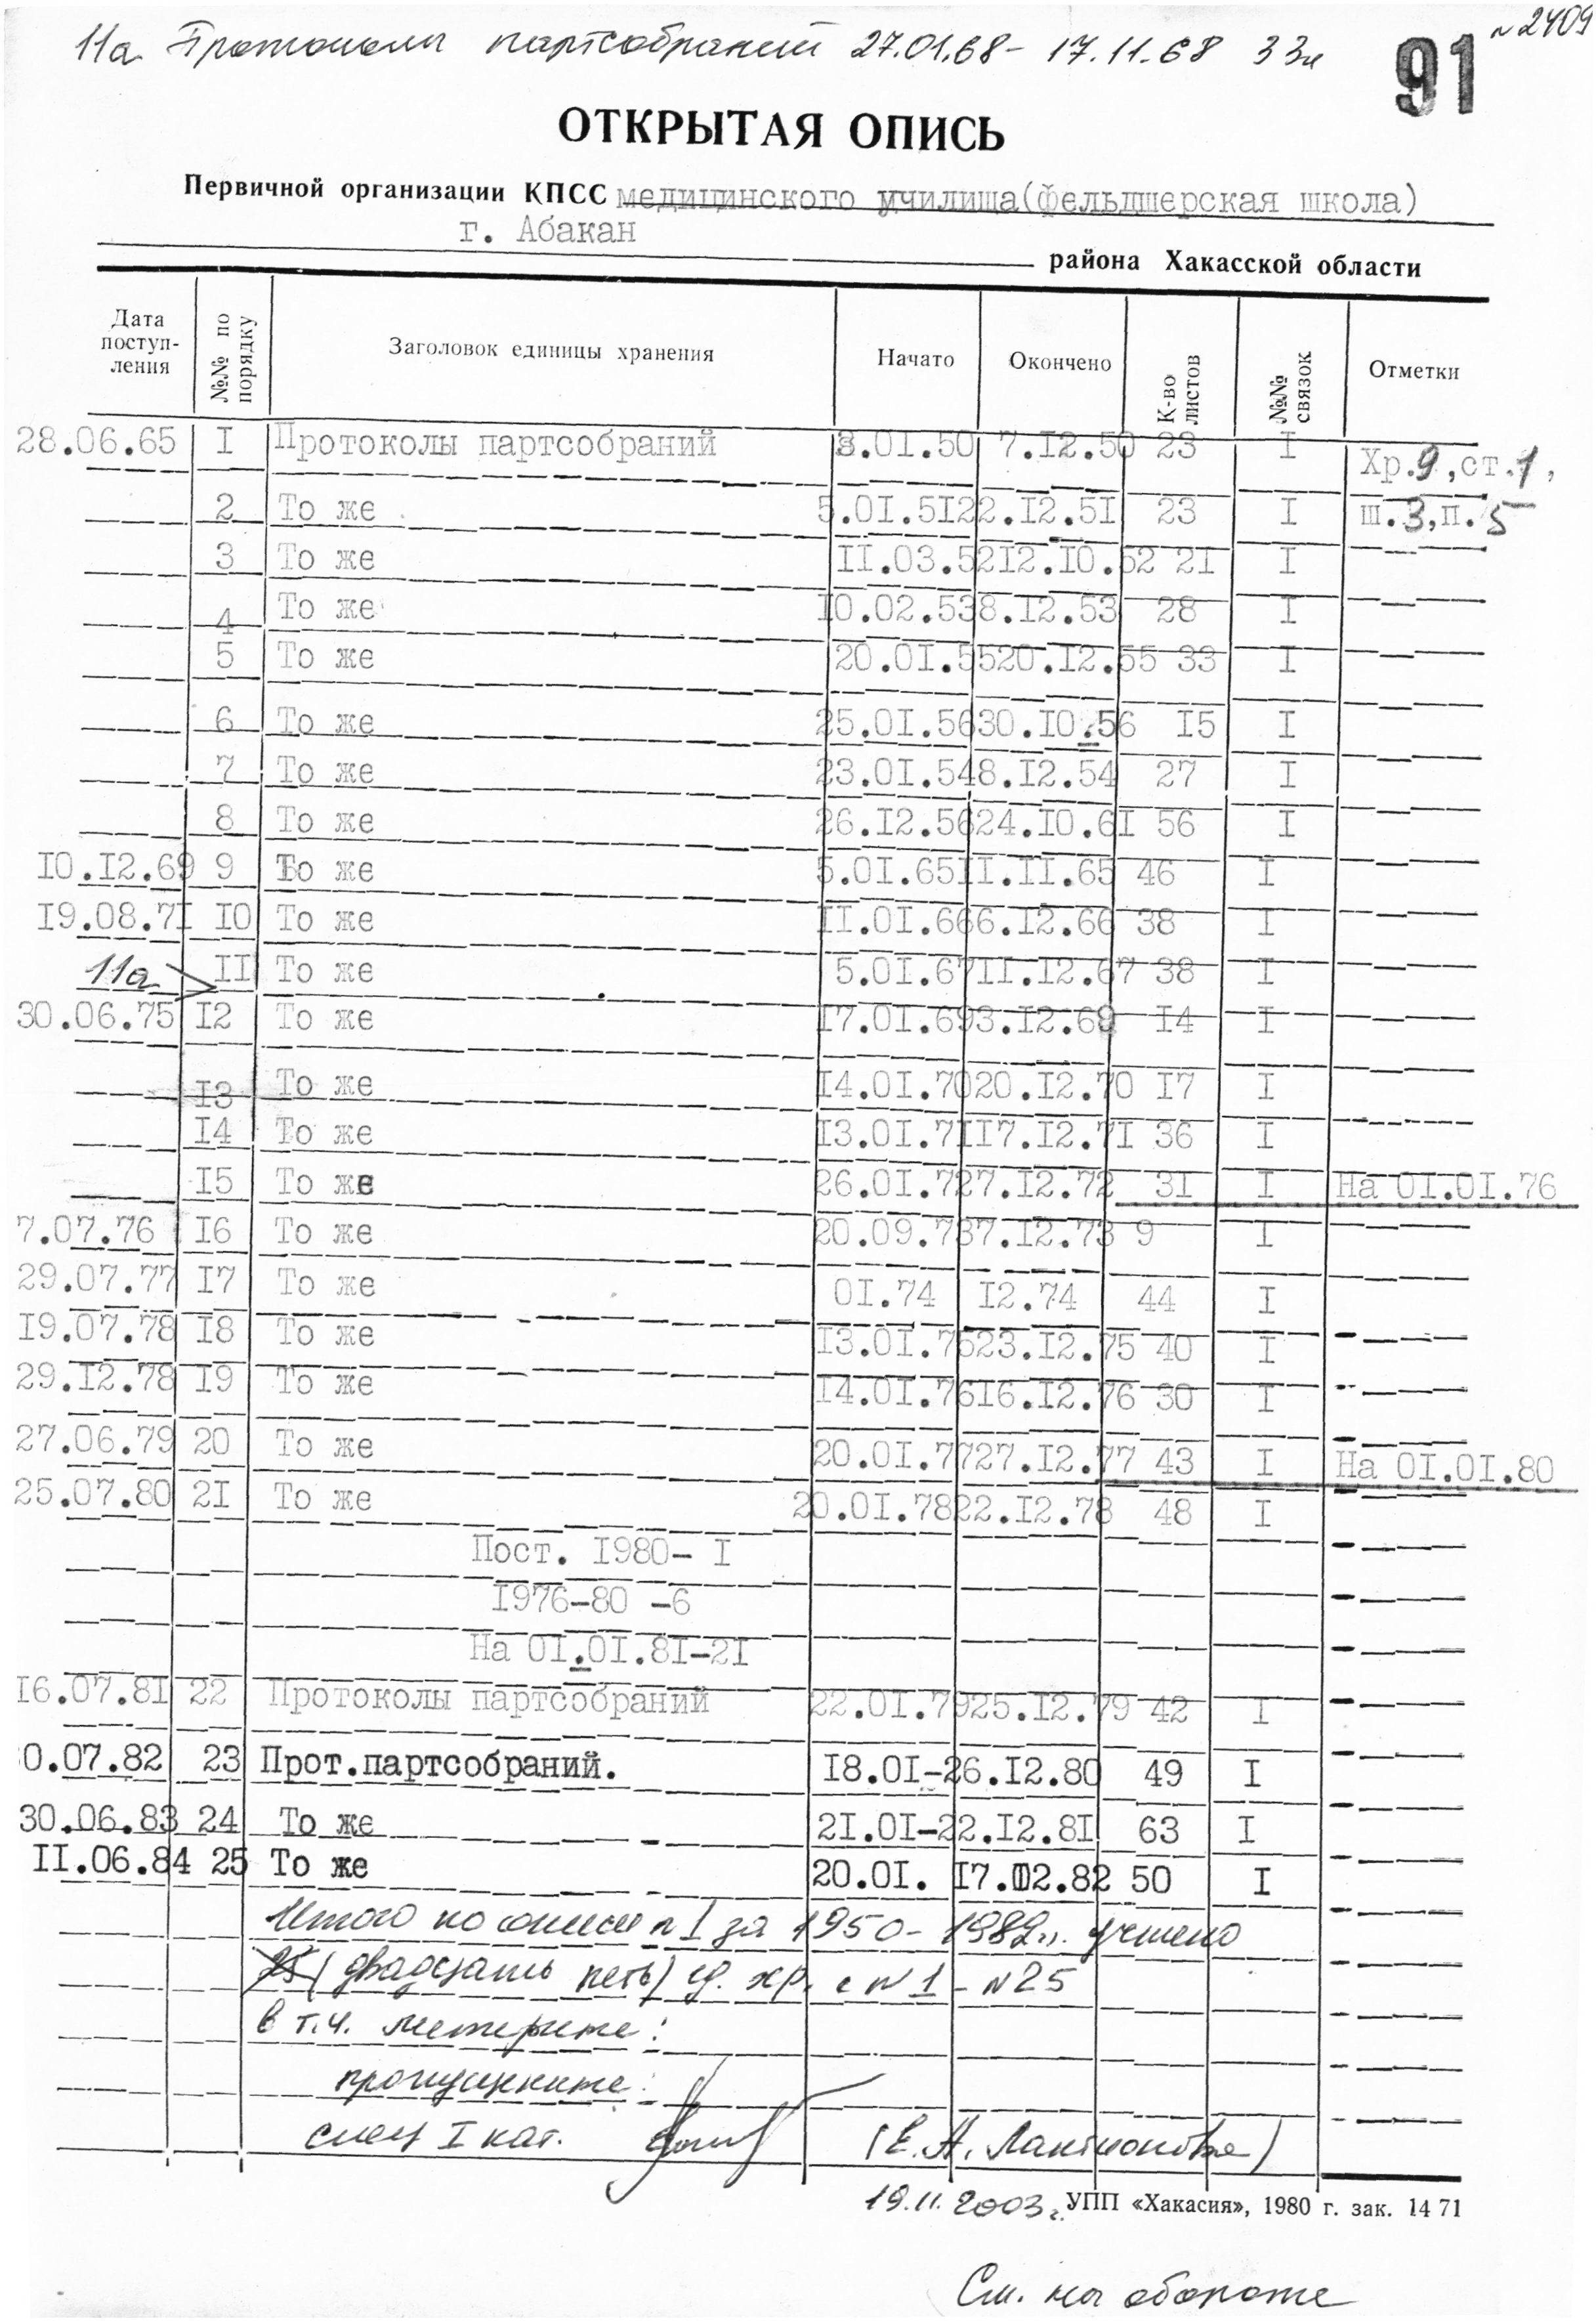 №2409
11а Протоколы партсобраний 27.01.68- 17.11.68 33л
91
ОТКРЫТАЯ ОПИСЬ
Первичной организации КПСС медицинского училища(фельдшерская школа)
г. Абакан
района Хакасской области
Дата поступ- ления №№ по порядку Заголовок единицы хранения Начато Окончено К-во листов №№ связок Отметки
28.06.65 I Протоколы партсобраний 3.01.50 7.12.50 23 I Хр.9,ст.1,
2 То же 5.01.51 22.12.51 23 I ш.3,п.5
3 То же II.03.52 12.10.52 21 I
4 То же 10.02.53 8.12.53 28 I
5 То же 20.01.55 20.12.55 33 I
6 То же 25.01.56 30.10.56 15 I
7 То же 23.01.54 8.12.54 27 I
8 То же 26.12.56 24.10.61 56 I
10.12.69 9 То же 5.01.65 II.II.65 46 I
19.08.71 10 То же II.01.66 6.12.66 38 I
11а II То же 5.01.67 II.12.67 38 I
30.06.75 12 То же 17.01.69 3.12.69 14 I
13 То же 14.01.70 20.12.70 17 I
14 То же 13.01.71 17.12.71 36 I
15 То же 26.01.72 7.12.72 31 I На 01.01.76
7.07.76 16 То же 20.09.73 7.12.73 9 I
29.07.77 17 То же 01.74 12.74 44 I
19.07.78 18 То же 13.01.75 23.12.75 40 I
29.12.78 19 То же 14.01.76 16.12.76 30 I
27.06.79 20 То же 20.01.77 27.12.77 43 I На 01.01.80
25.07.80 21 То же 20.01.78 22.12.78 48 I
Пост. 1980- I
1976-80 -6
На 01.01.81-21
16.07.81 22 Протоколы партсобраний 22.01.79 25.12.79 42 I
0.07.82 23 Прот.партсобраний. 18.01-26.12.80 49 I
30.06.83 24 То же 21.01-22.12.81 63 I
II.06.84 25 То же 20.01. 17.12.82 50 I
Итого по описи № I за 1950- 1982гг. учтено
25 (двадцать пять) ед. хр. с №1 - №25
в т.ч. литерные:
пропущенные:
спец I кат. (Е. А. Лактионова)
19.11.2003г. УПП «Хакасия», 1980 г. зак. 14 71
См. на обороте